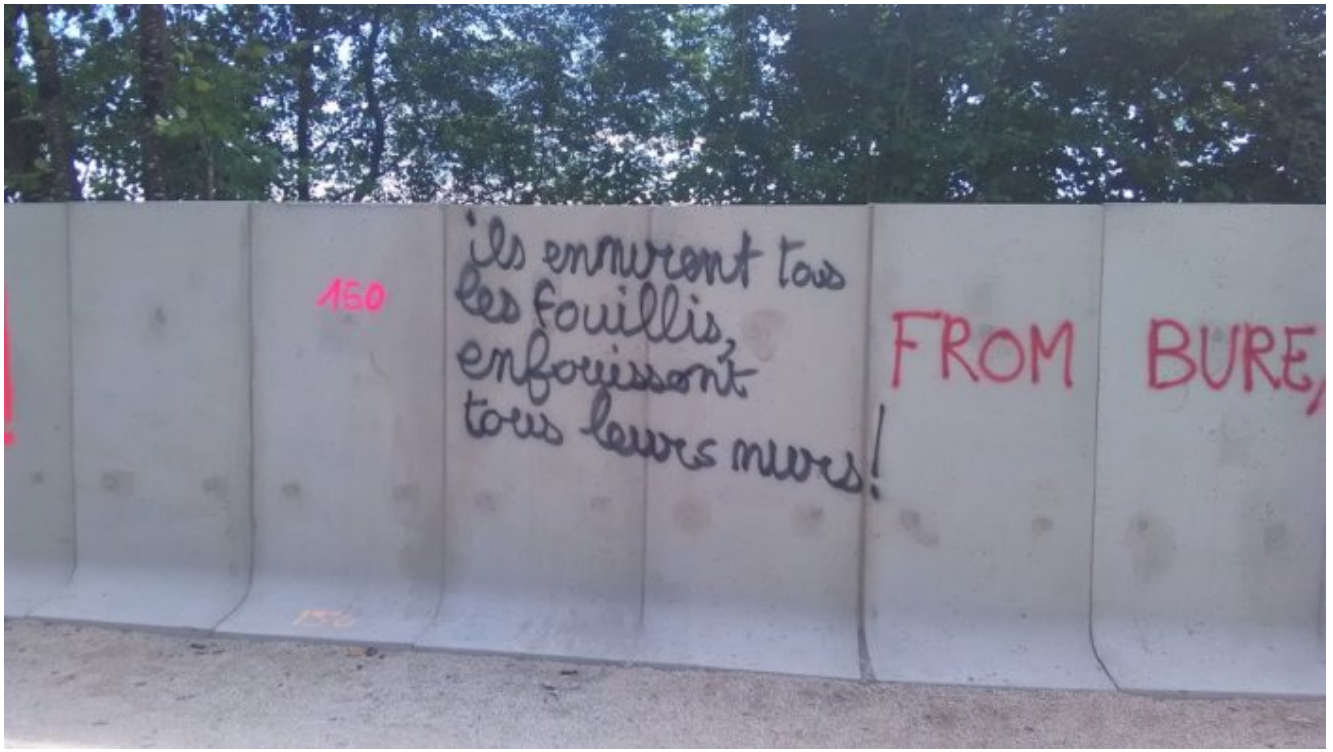 150
ils enmurent tous
les fouillis,
enfouissent
tous leurs murs!
FROM BURE,